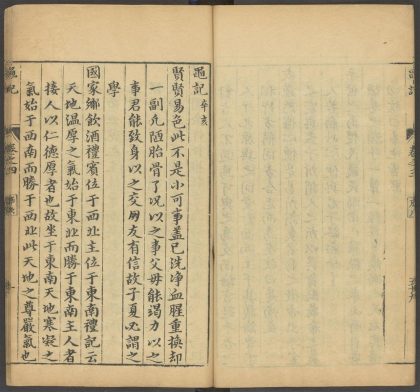 黽記 辛亥
賢賢易色此不是小可事蓋已洗淨血腥重換却
一副凡陋胎骨了况以之事父母能竭力以之
事君能致身以之交朋友有信故子夏必謂之
學
國家鄉飲酒禮賓位于西北主位于東南禮記云
天地溫厚之氣始于東北而勝于東南主人者
接人以仁德厚者也故坐于東南天地寒凝之
氣始于西南而勝于西北此天地之尊嚴氣也
黽記
卷之四